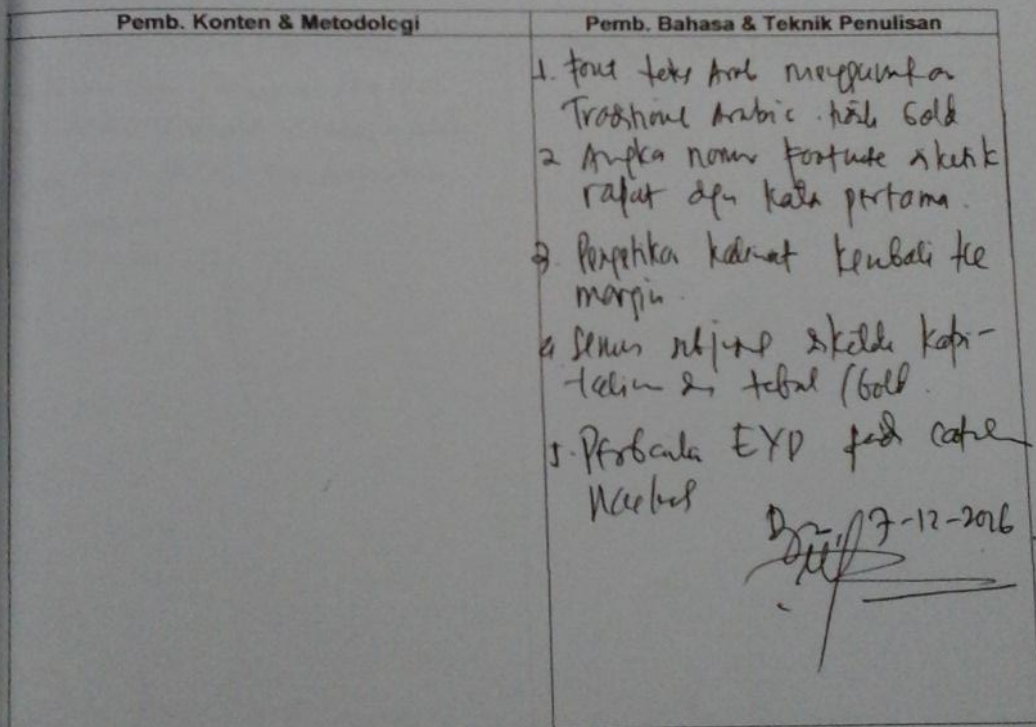 Pemb. Konten & Metodologi
Pemb. Bahasa & Teknik Penulisan
1. Font teks Arab menggunakan
Traditional Arabic. bold
2 Angka nomor footnote diketik
rapat dgn kata pertama.
3. Pengetikan kalimat kembali ke
margin.
4. Semua diketik kapi-
tal tebal (bold.
5. Perbaiki EYD pada
7-12-2016